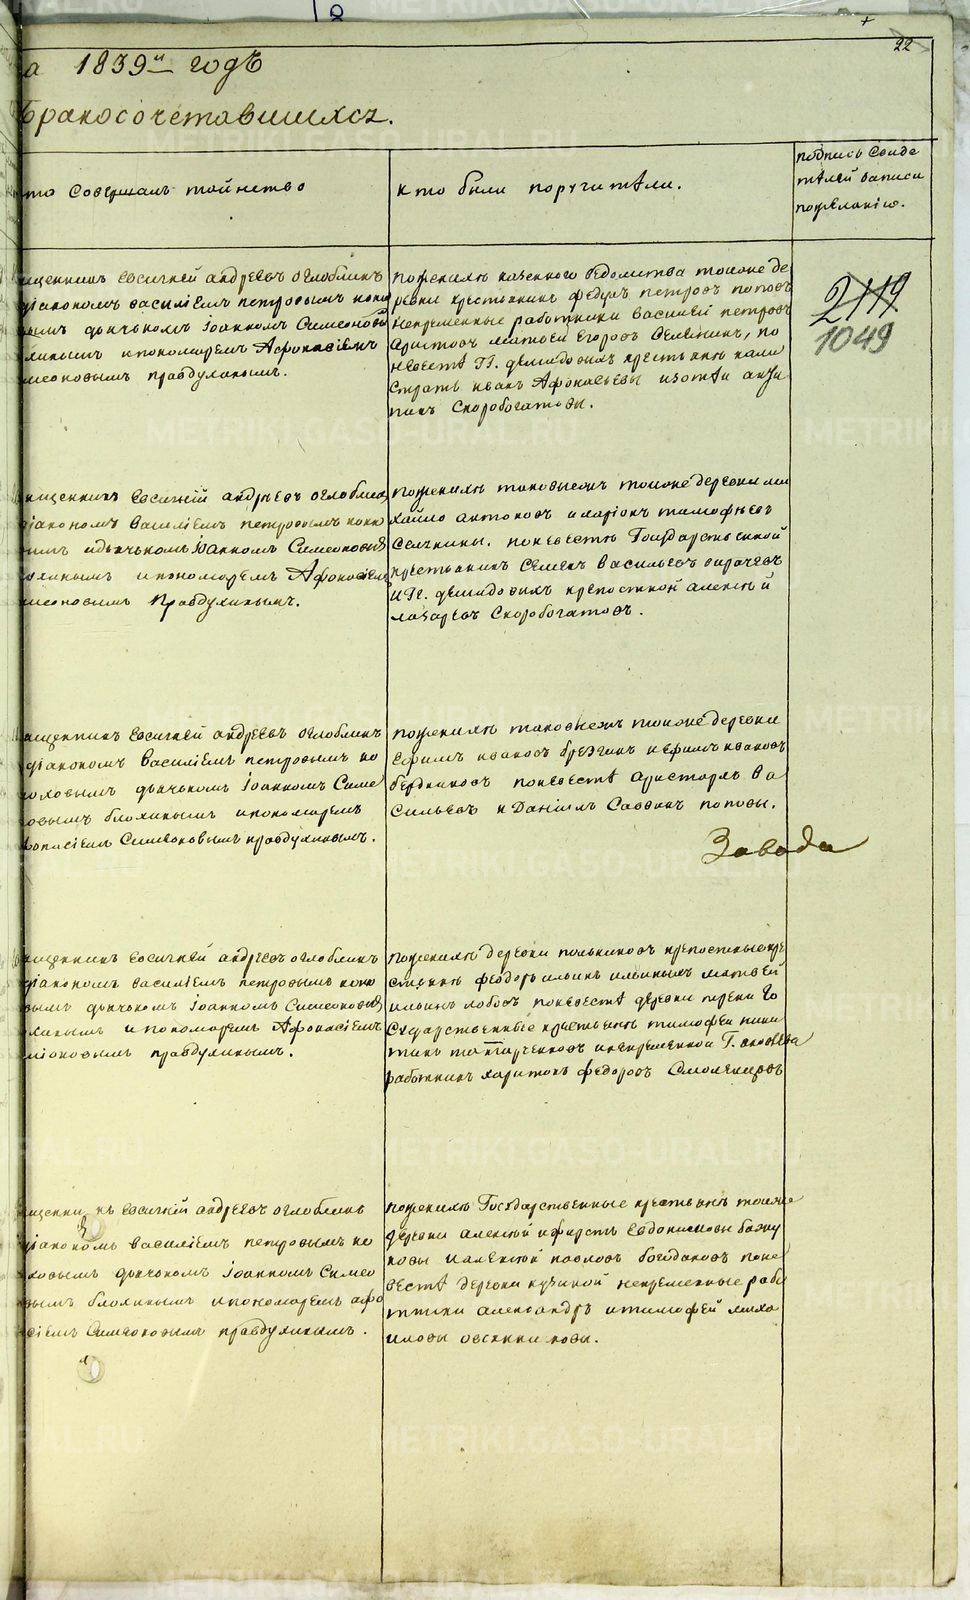 22
а 1839й годъ
бракосочетавшихся.
кто совершалъ таинство
кто были поручители.
подпись свиде
телей записи
по желанію.
2119
1049
щенникъ Евсигней андреевъ оглоблинъ
діакономъ василіемъ петровымъ коно
вымъ дьячкомъ Іоанномъ Симеоновы
линымъ ипономаремъ Афонасіемъ
меоновымъ правдухинымъ.
по женихѣ казеннаго ведомства тоюже де
ревни крестьянинъ федоръ петровъ поповъ
непременные работники василей петровъ
матвей Егоровъ по
невестѣ Гг. демидовыхъ крестьяне кали
стратъ иванъ Афонасьевы изотъ
Скоробогатовы.
щенникъ Евсигній андреевъ оглоблин
діакономъ василіемъ петровымъ коно
вымъ идьячкомъ Іоанномъ Симеоновы
линымъ ипономаремъ Афонасіем
меоновымъ Правдухинымъ.
по женихѣ таковыежъ тоюже деревни ми
хайло антоновъ иларіонъ тимофѣевъ
Селѧнины. по невестѣ Государственной
крестьянинъ Семенъ васильевъ
и Гг. демидовыхъ крепостной алексѣй
лазаревъ Скоробогатовъ.
щенникъ Евсигней андреевъ оглоблинъ
діакономъ василіемъ петровымъ ко
новымъ дьячкомъ Іоанномъ Симе
новымъ блохинымъ ипономаремъ
фонасіем Симеоновымъ правдухинымъ.
по женихѣ таковыежъ тоюже деревни
Ефимъ ивановъ брезгинъ иефимъ ивановъ
бердниковъ по невестѣ аристархъ ва
сильевъ и Даніилъ Саввинъ поповы.
Завода
щенникъ Евсигней андреевъ оглоблинъ
діакономъ василіемъ петровымъ коно
вымъ дьячкомъ Іоанномъ Симеоновы
линымъ ипономаремъ Афонасіемъ
меоновымъ правдухинымъ.
по женихѣ деревни крепостные кре
стьяне феодоръ ильинъ матвей
ильинъ лобовъ по невестѣ деревни Го
сударственные крестьяне тимофеи ники
тинъ инепременной Г. яковлева
работникъ харитонъ федоровъ
щенникъ Евсигній андреевъ оглоблинъ
діакономъ василіемъ петровымъ ко
новымъ дьячкомъ Іоанномъ Симео
вымъ блохинымъ ипономаремъ афо
сіемъ Симеоновымъ правдухинымъ.
по женихѣ Государственные крестьяне тоюже
деревни алексѣй ифирсъ Евдокимовы бажу
ковы иалексѣй павловъ богдановъ по не
вестѣ деревни кузиной непременные рабо
тники александръ итимофей миха
иловы овсянниковы.